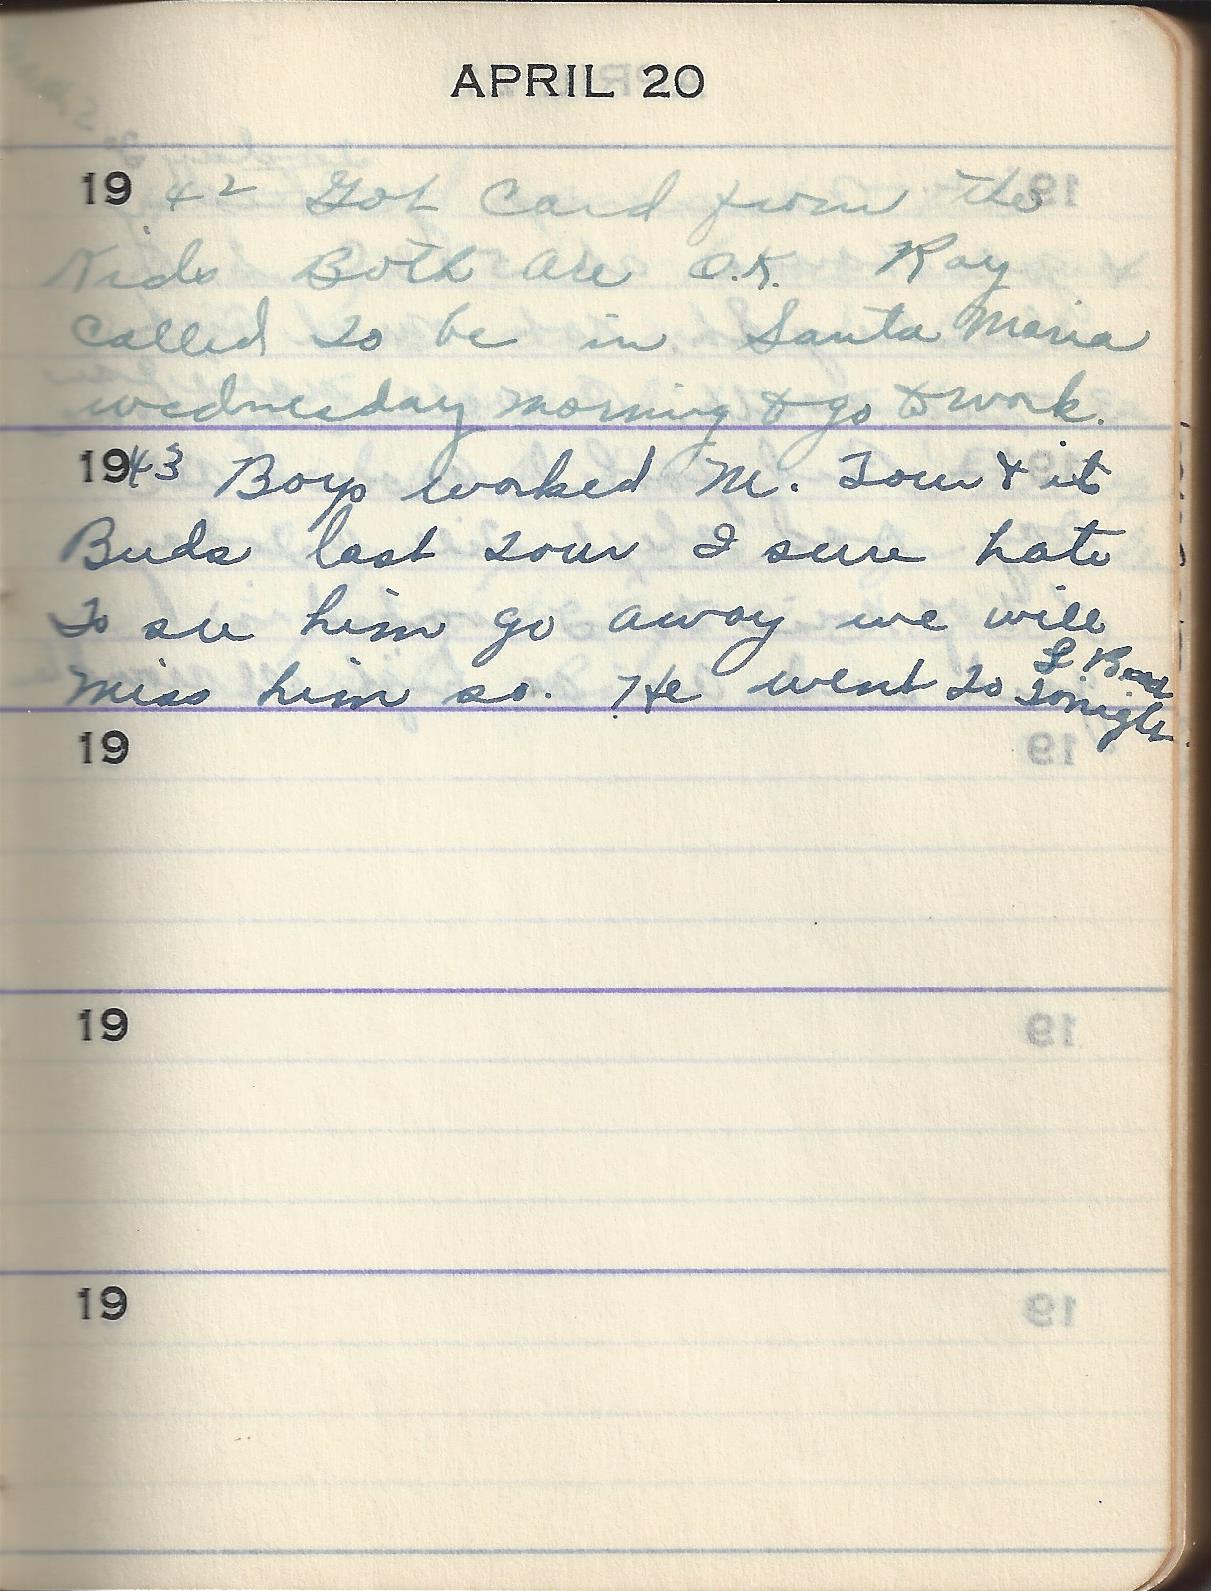 APRIL 20
1942 Got Card from the
Kids Both are O.K. Roy
called to be in Santa Maria
wednesday morning to go to work.
1943 Boys worked M. Tour & it
Buds last tour I sure hate
To see him go away we will
Miss him so. He went to L. Beach
Tonight.
19
19
19